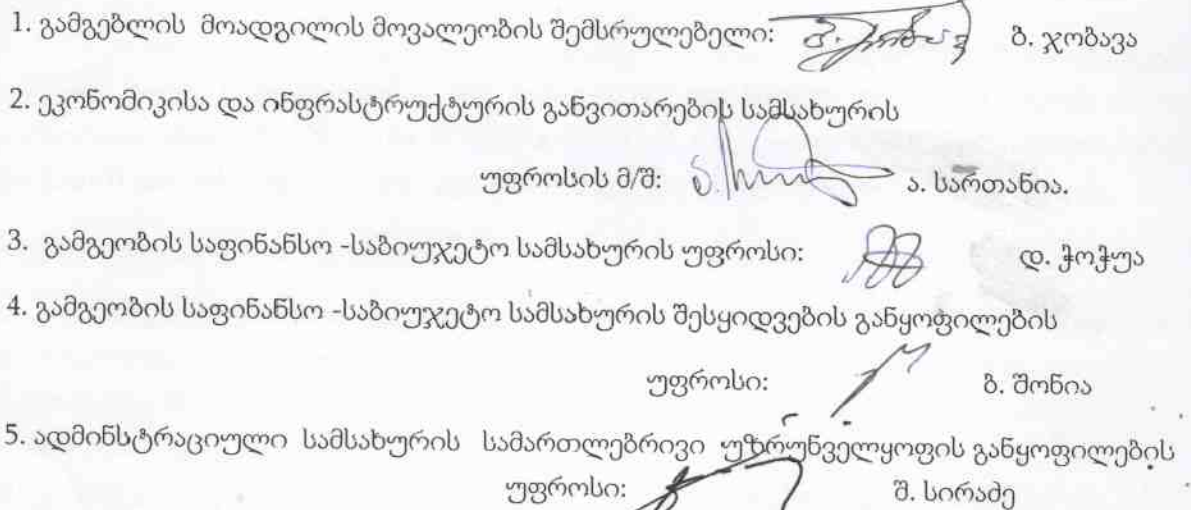 1. გამგებლის მოადგილის მოვალეობის შემსრულებელი: ბ. ჯობავა
2. ეკონომიკისა და ინფრასტრუქტურის განვითარების სამსახურის
უფროსის მ/შ: ა. სართანია.
3. გამგეობის საფინანსო -საბიუჯეტო სამსახურის უფროსი: დ. ჭოჭუა
4. გამგეობის საფინანსო -საბიუჯეტო სამსახურის შესყიდვების განყოფილების
უფროსი: ბ. შონია
5. ადმინსტრაციული სამსახურის სამართლებრივი უზრუნველყოფის განყოფილების
უფროსი: შ. სირაძე